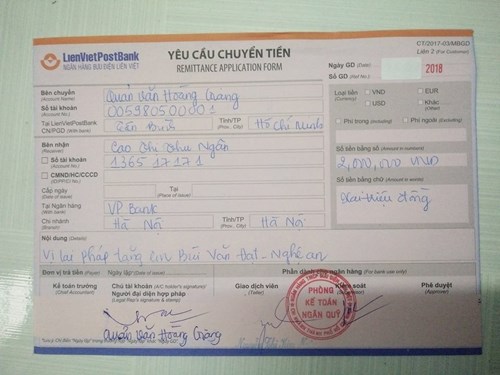 CT/2017-03/MBGD
Liên 2 (For Customer)
LienVietPostBank
NGÂN HÀNG BƯU ĐIỆN LIÊN VIỆT
YÊU CẦU CHUYỂN TIỀN
REMITTANCE APPLICATION FORM
Ngày GD (Date) 2018
Số GD (Ref No.)
Bên chuyển (Account Name) Quản Văn Hoàng Giang
Số tài khoản (Account No.) 00598050001
Tại LienVietPostBank CN/PGD (With bank) Tân Bình Tỉnh/TP (Prov., City) Hồ Chí Minh
Loại tiền (Currency) VND EUR
USD Khác (Other)
Phí trong (Including) Phí ngoài (Excluding)
Bên nhận (Receiver) Cao Thị Thu Ngân
Số tài khoản (Account No.) 136517171
CMND/HC/CCCD
Cấp ngày (Date of issue) Tại (Place of issue)
Tại Ngân hàng (With bank) VP Bank
Chi nhánh (Branch) Hà Nội Tỉnh/TP (Prov., City) Hà Nội
Số tiền bằng số (Amount in numbers)
2,000,000 VND
Số tiền bằng chữ (Amount in words)
Hai triệu đồng
Nội dung (Details)
Vị lai pháp tặng em Bùi Văn Đạt - Nghệ an
Đơn vị trả tiền (Payer) Ngày lập (Date of issue)
Phần dành cho ngân hàng (For bank use only)
Kế toán trưởng (Chief Accountant)
Chủ tài khoản (A/C holder's signature)
Người đại diện hợp pháp
(Legal Rep's signature & stamp)
Giao dịch viên (Teller)
Kiểm soát
Phê duyệt (Approver)
PHÒNG
KẾ TOÁN
NGÂN QUỸ
Quản Văn Hoàng Giang